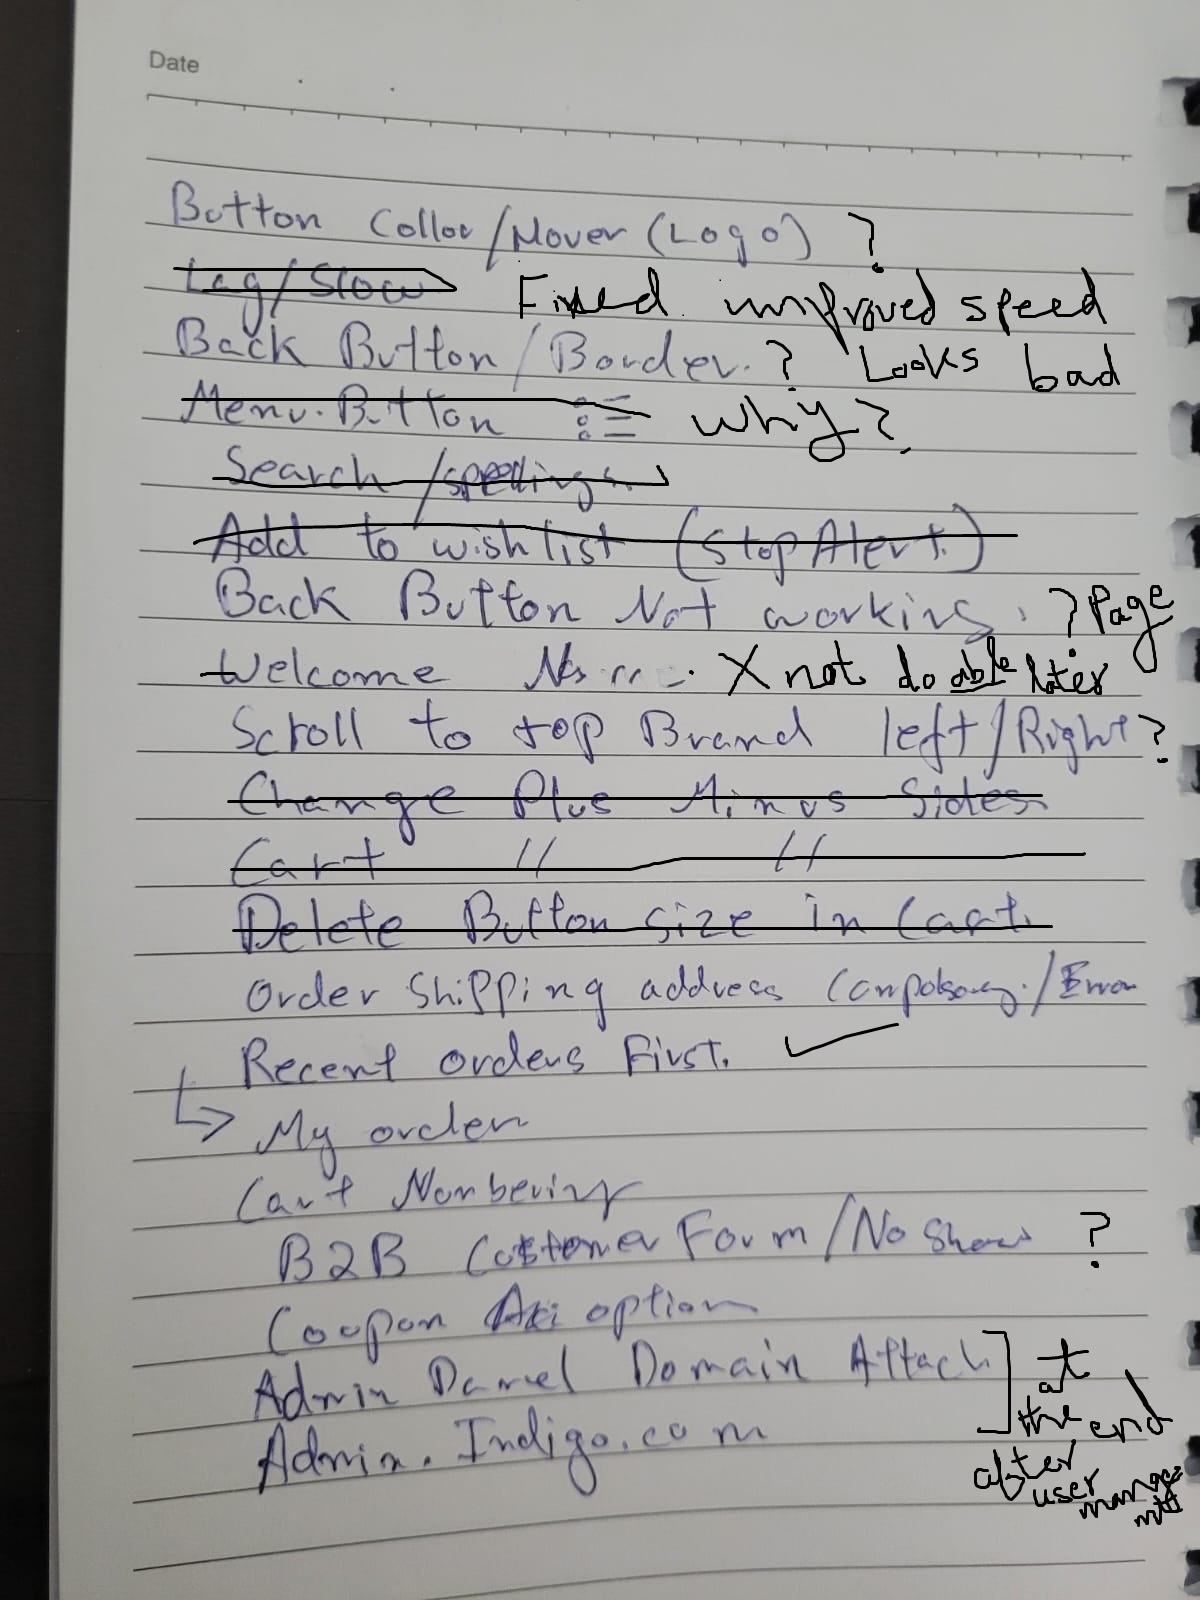 Date
Button Collor/Hover (Logo) ?
Lag/Slow Fixed improved speed
Back Button/Border. ? Looks bad
Menu Button why?
Search/spellings
Add to wishlist (Stop Alert.)
Back Button Not working. ? Page
Welcome X not do able later
Scroll to top Brand left/Right ?
Change Plus Minus Sides
Cart " "
Delete Button size in Cart.
Order Shipping address Compolsory./Error
Recent orders First. ✓
↳ My order
Cart Numbering
B2B Customer Form/No Show ?
Coopon option
Admin Pannel Domain Attach
Admin.Indigo.com
at the end after user mangemnt